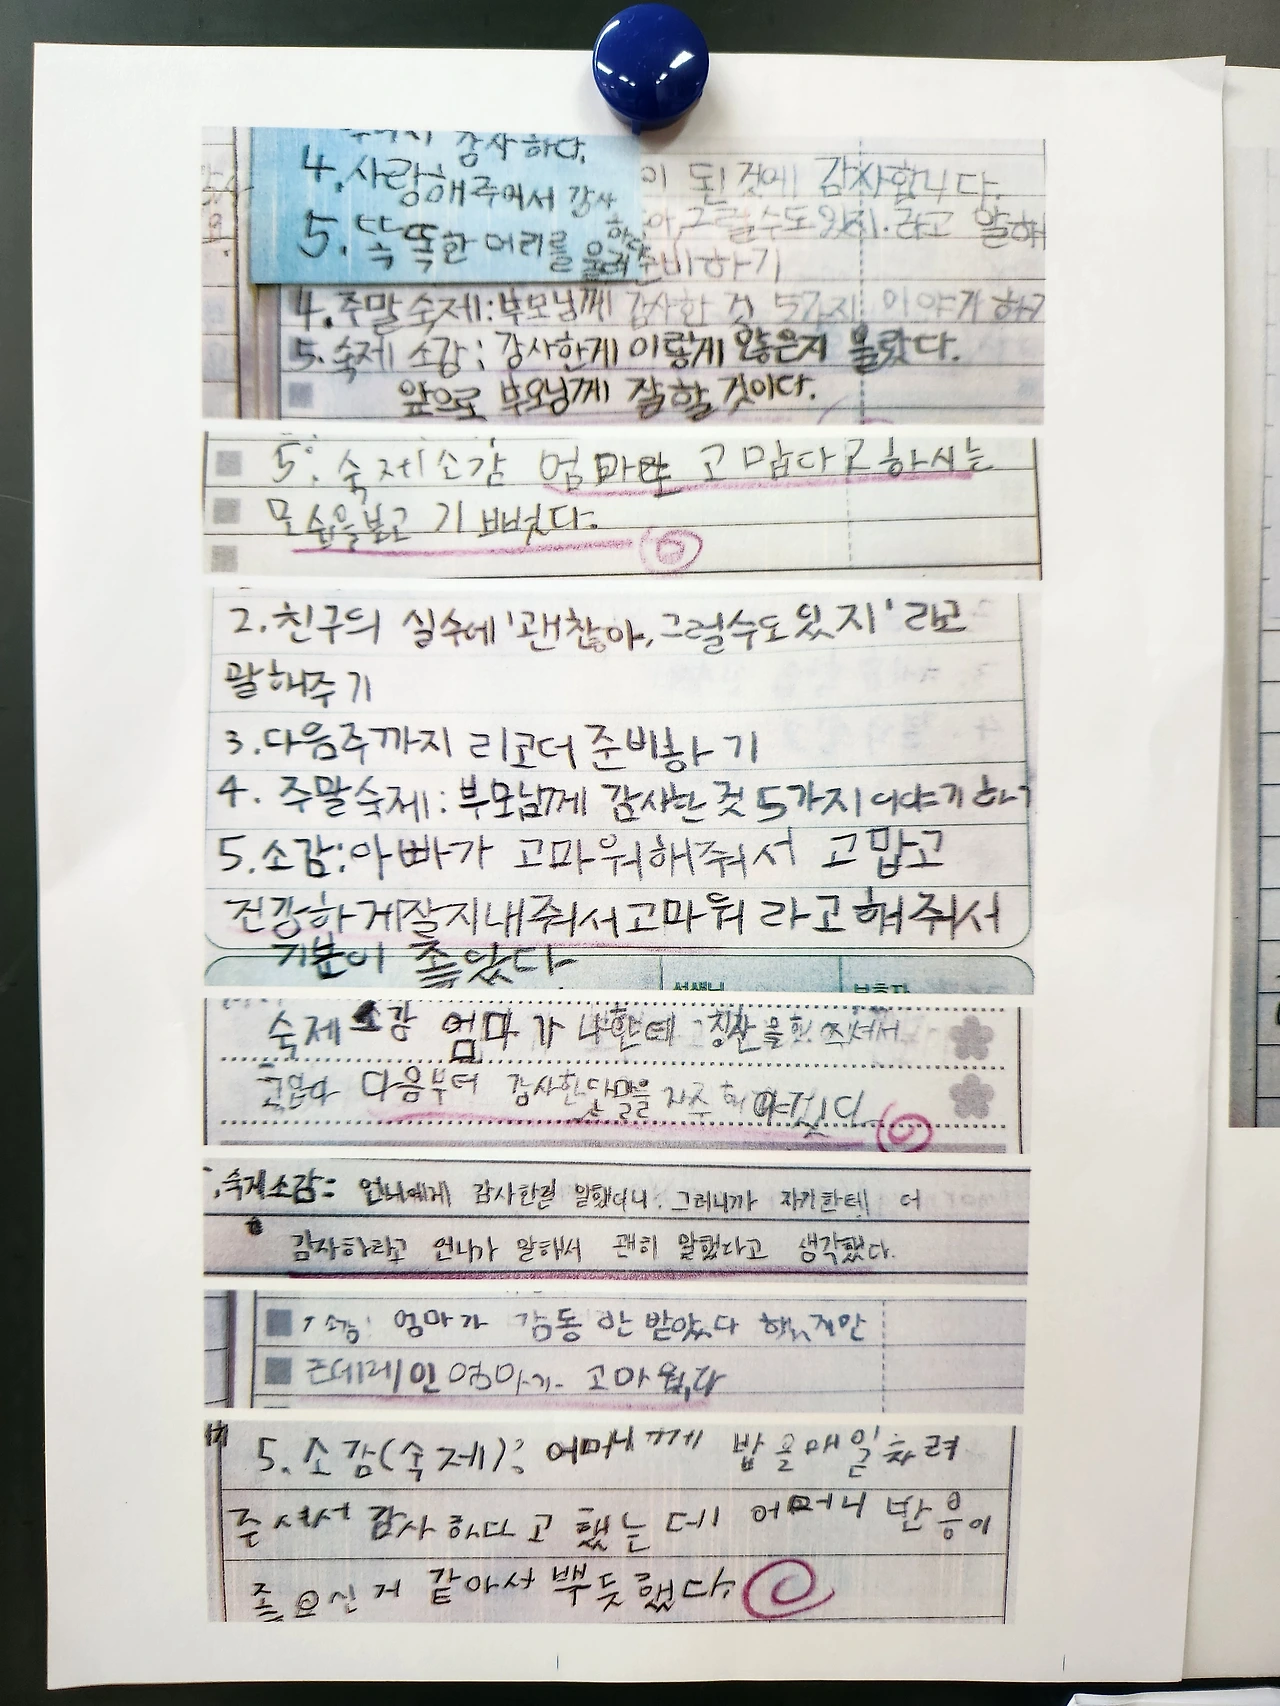 감사하다.
4. 사랑해주어서 감사하다
5. 똑똑한 머리를 물려
이 된것에 감사합니다.
그럴수도있지. 라고 말해
준비하기
4. 주말숙제:부모님께 감사한 것 5가지 이야기하기
5. 숙제 소감: 감사한게 이렇게 않은지 몰랐다.
앞으로 부모님께 잘할 것이다.
5. 숙제소감 엄마또 고맙다고하시는
모습을보고 기뻤다.
2. 친구의 실수에 '괜찮아, 그럴수도있지' 라고
말해주기
3. 다음주까지 리코더 준비하기
4. 주말숙제: 부모님께 감사한 것 5가지 이야기하기
5. 소감: 아빠가 고마워해줘서 고맙고
건강하게잘지내줘서고마워 라고해줘서
기분이 좋았다
선생님 보호자
숙제 소감 엄마가 나한테 칭찬을해 주셔서
다음부터 감사한단말을 자주 해야겠다.
숙제소감: 언니에게 감사한걸 말했더니. 그러니까 자기한테 더
감사하라고 언니가 말해서 괜히 말했다고 생각했다.
소감: 엄마가 감동 안 받았다 했지만
츤데레인 엄마가 고마웠다
5. 소감(숙제): 어머니께 밥을매일차려
주셔서 감사하다고 했는데 어머니 반응이
좋으신거 같아서 뿌듯했다.